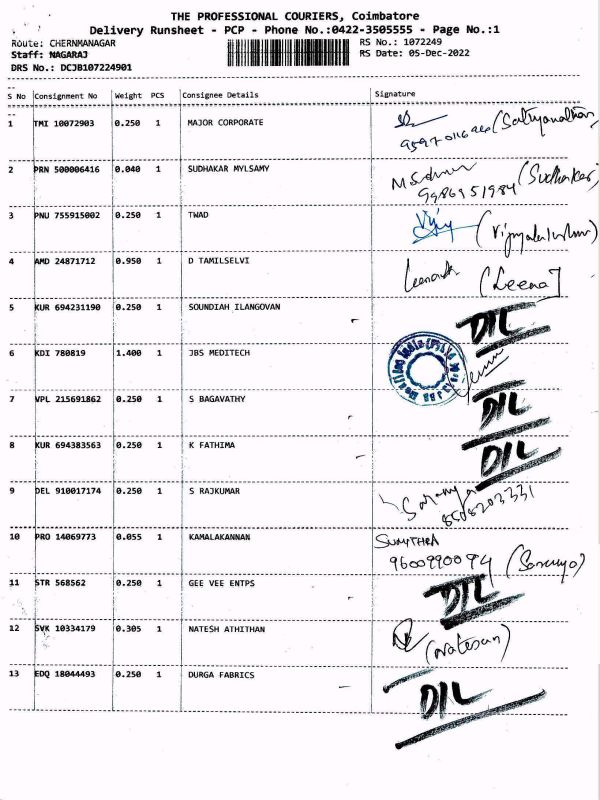 THE PROFESSIONAL COURIERS, Coimbatore
Delivery Runsheet - PCP - Phone No.:0422-3505555 - Page No.:1
Route: CHERNMANAGAR RS No.: 1072249
Staff: NAGARAJ RS Date: 05-Dec-2022
DRS No.: DCJB107224901
S No Consignment No Weight PCS Consignee Details Signature
1 TMI 10072903 0.250 1 MAJOR CORPORATE
2 PRN 500006416 0.040 1 SUDHAKAR MYLSAMY 9986951984 (Sudhakar)
3 PNU 755915002 0.250 1 TWAD
4 AMD 24871712 0.950 1 D TAMILSELVI (Leena)
5 KUR 694231190 0.250 1 SOUNDIAH ILANGOVAN DIL
6 KDI 780819 1.400 1 JBS MEDITECH
7 VPL 215691862 0.250 1 S BAGAVATHY DIL
8 KUR 694383563 0.250 1 K FATHIMA DIL
9 DEL 910017174 0.250 1 S RAJKUMAR
10 PRO 14069773 0.055 1 KAMALAKANNAN SUMITHRA
9600990094
11 STR 568562 0.250 1 GEE VEE ENTPS DIL
12 SVK 10334179 0.305 1 NATESH ATHITHAN (Natesan)
13 EDQ 18044493 0.250 1 DURGA FABRICS DIL